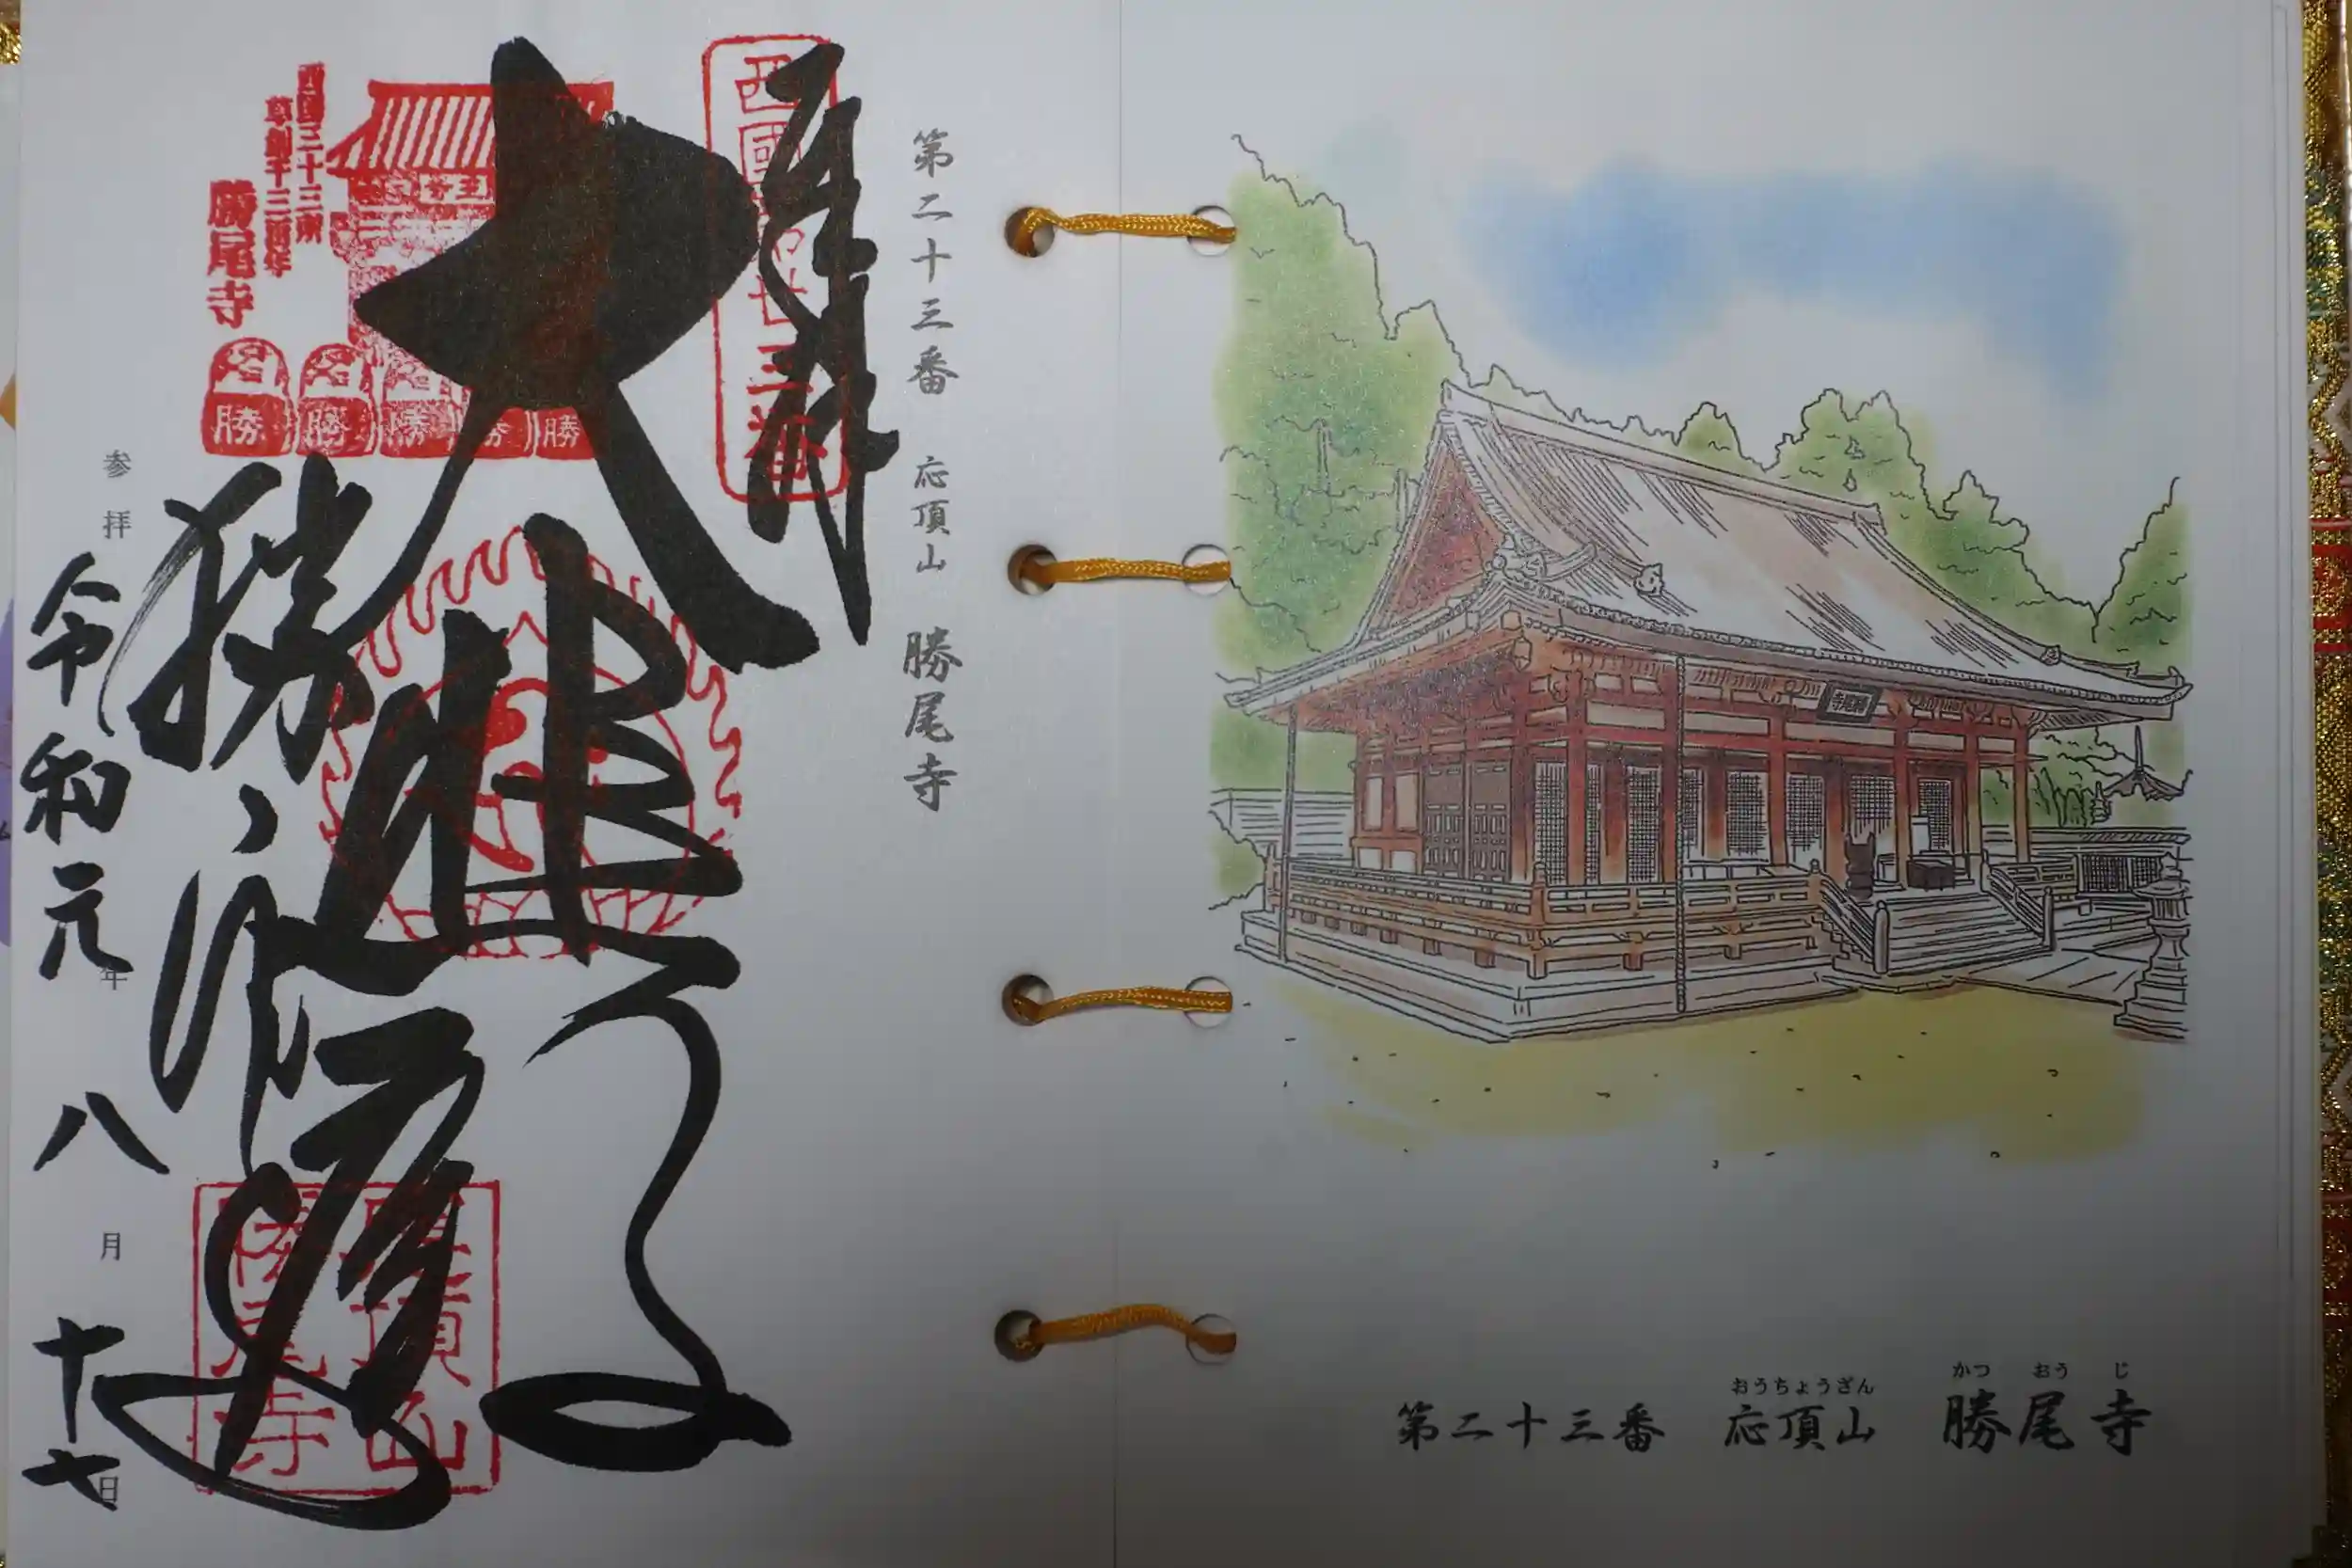 第二十三番 応頂山 勝尾寺
かつ おう じ
おうちょうざん
第二十三番 応頂山 勝尾寺
勝尾寺
奉拝
西國第廿三番
大悲
勝尾寺
西国三十三所
草創千三百年
勝尾寺
勝 勝 勝 勝 勝
應頂山
勝尾寺
参拝 令和元年八月十七日